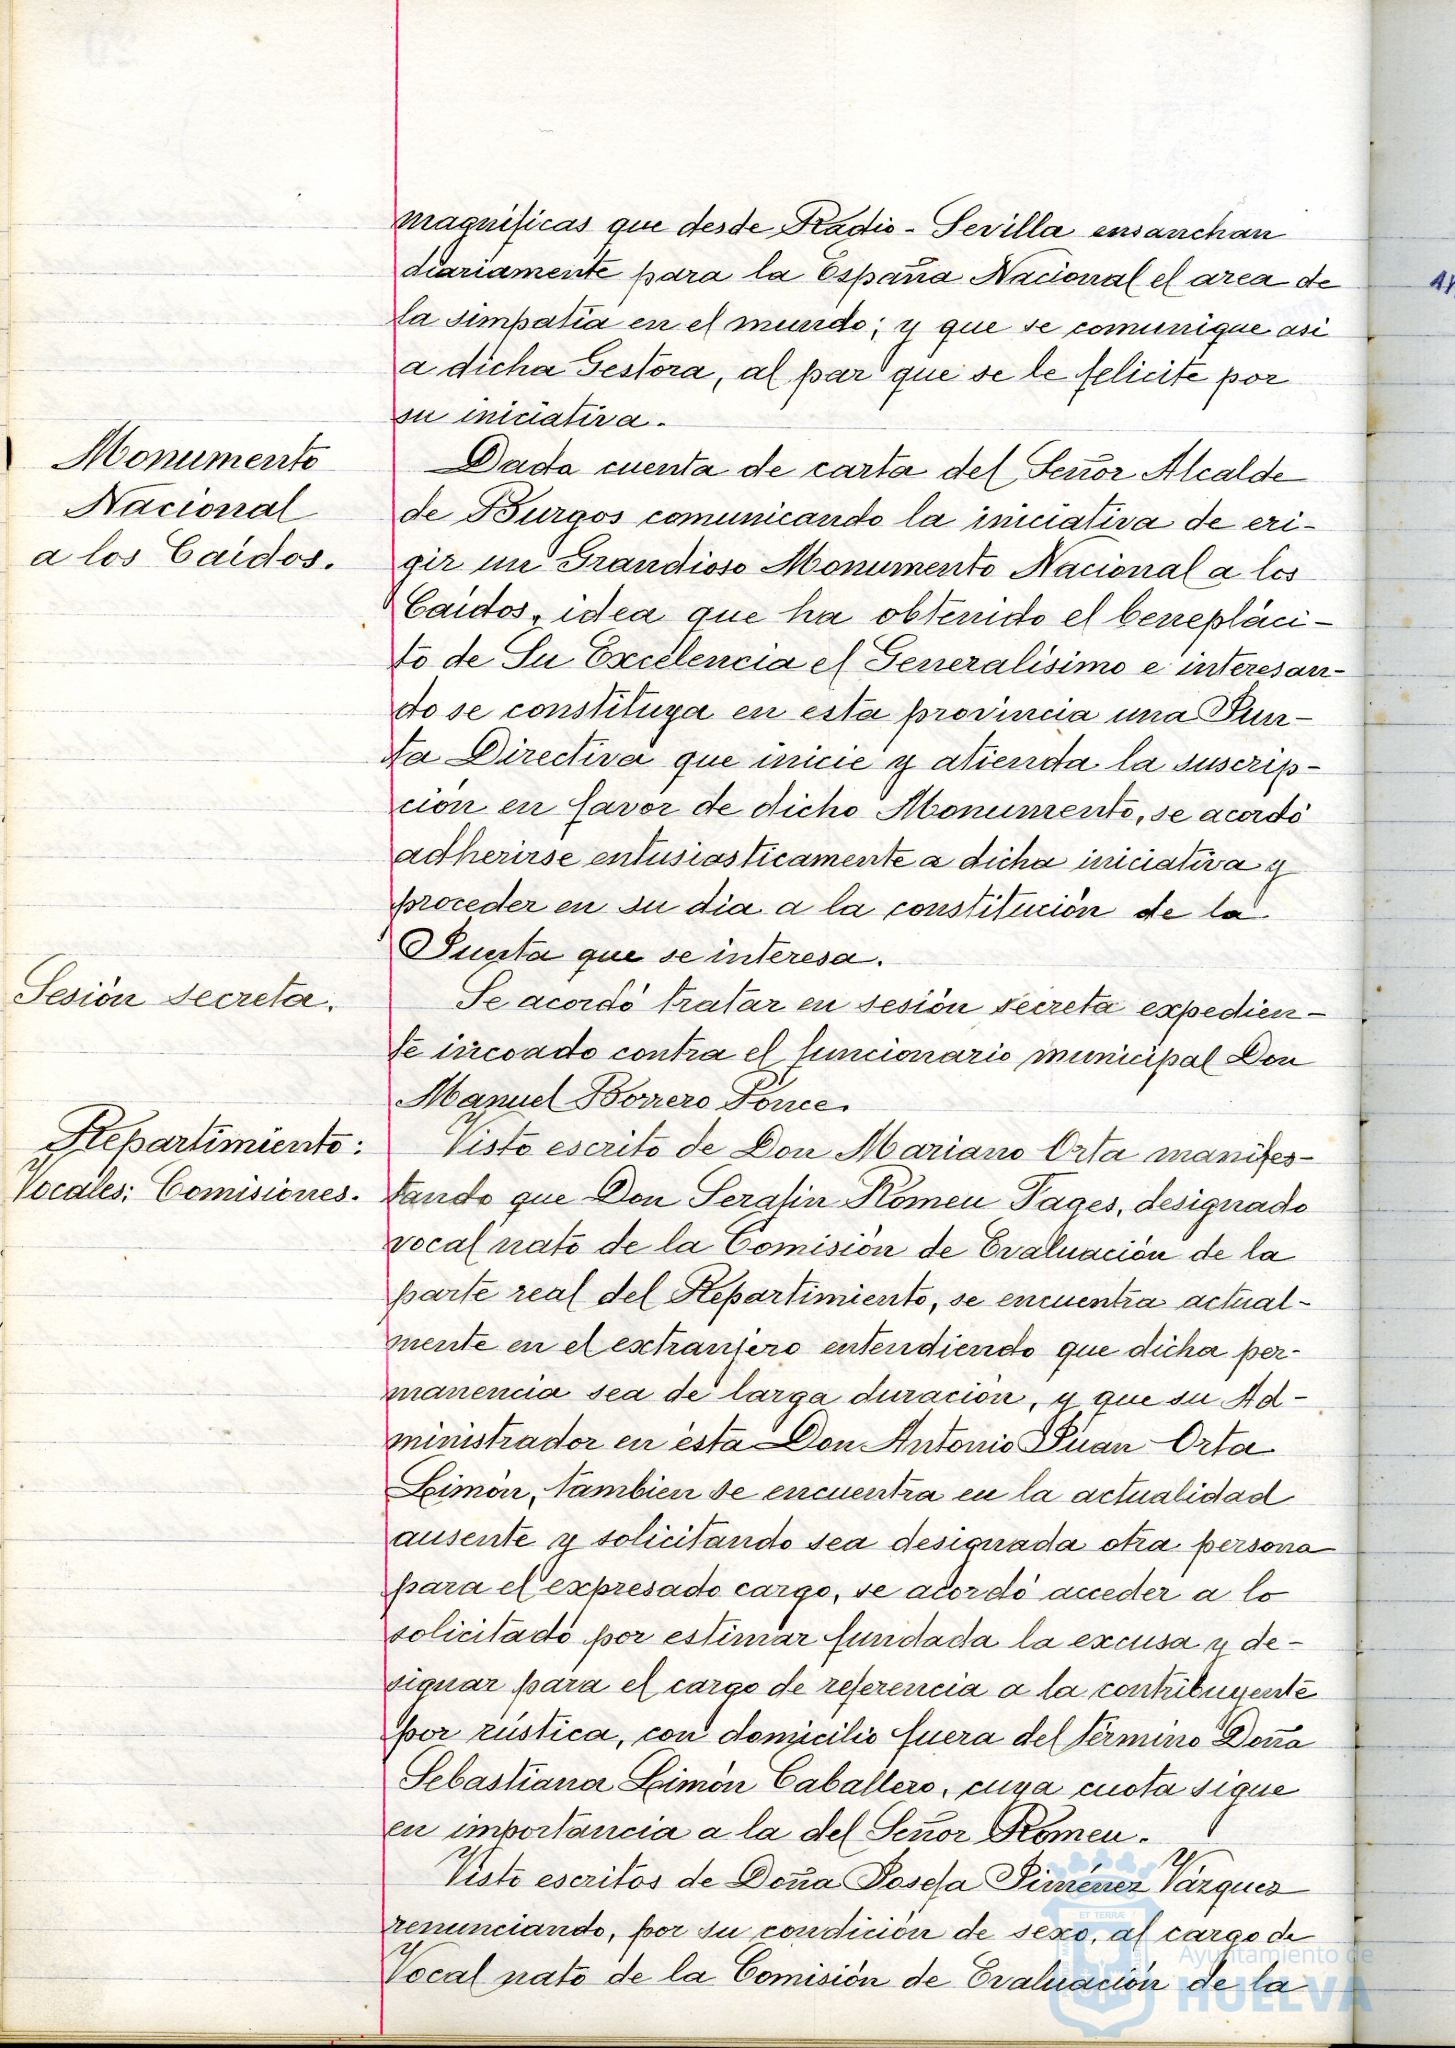 magníficas que desde Radio-Sevilla ensanchan
diariamente para la España Nacional el area de
la simpatía en el mundo; y que se comunique asi
a dicha Gestora, al par que se le felicite por
su iniciativa.
Monumento
Nacional
a los Caídos.
Dada cuenta de carta del Señor Alcalde
de Burgos comunicando la iniciativa de eri-
gir un Grandioso Monumento Nacional a los
Caídos, idea que ha obtenido el beneplàci-
to de Su Excelencia el Generalísimo e interesan-
do se constituya en esta provincia una Jun-
ta Directiva que inicie y atienda la suscrip-
ción en favor de dicho Monumento, se acordó
adherirse entusiasticamente a dicha iniciativa y
proceder en su dia a la constitución de la
Junta que se interesa.
Sesión secreta.
Se acordó tratar en sesión secreta expedien-
te incoado contra el funcionario municipal Don
Manuel Borrero Ponce.
Repartimiento:
Vocales: Comisiones.
Visto escrito de Don Mariano Orta manifes-
tando que Don Serafin Romeu Fages, designado
vocal nato de la Comisión de Evaluación de la
parte real del Repartimiento, se encuentra actual-
mente en el extranjero entendiendo que dicha per-
manencia sea de larga duración, y que su Ad-
ministrador en ésta Don Antonio Juan Orta
Limón, tambien se encuentra en la actualidad
ausente y solicitando sea designada otra persona
para el expresado cargo, se acordó acceder a lo
solicitado por estimar fundada la excusa y de-
signar para el cargo de referencia a la contribuyente
por rústica, con domicilio fuera del término Doña
Sebastiana Limón Caballero, cuya cuota sigue
en importancia a la del Señor Romeu.
Visto escritos de Doña Josefa Jiménez Vázquez
renunciando, por su condición de sexo, al cargo de
Vocal nato de la Comisión de Evaluación de la
ET TERRÆ
Ayuntamiento de
HUELVA